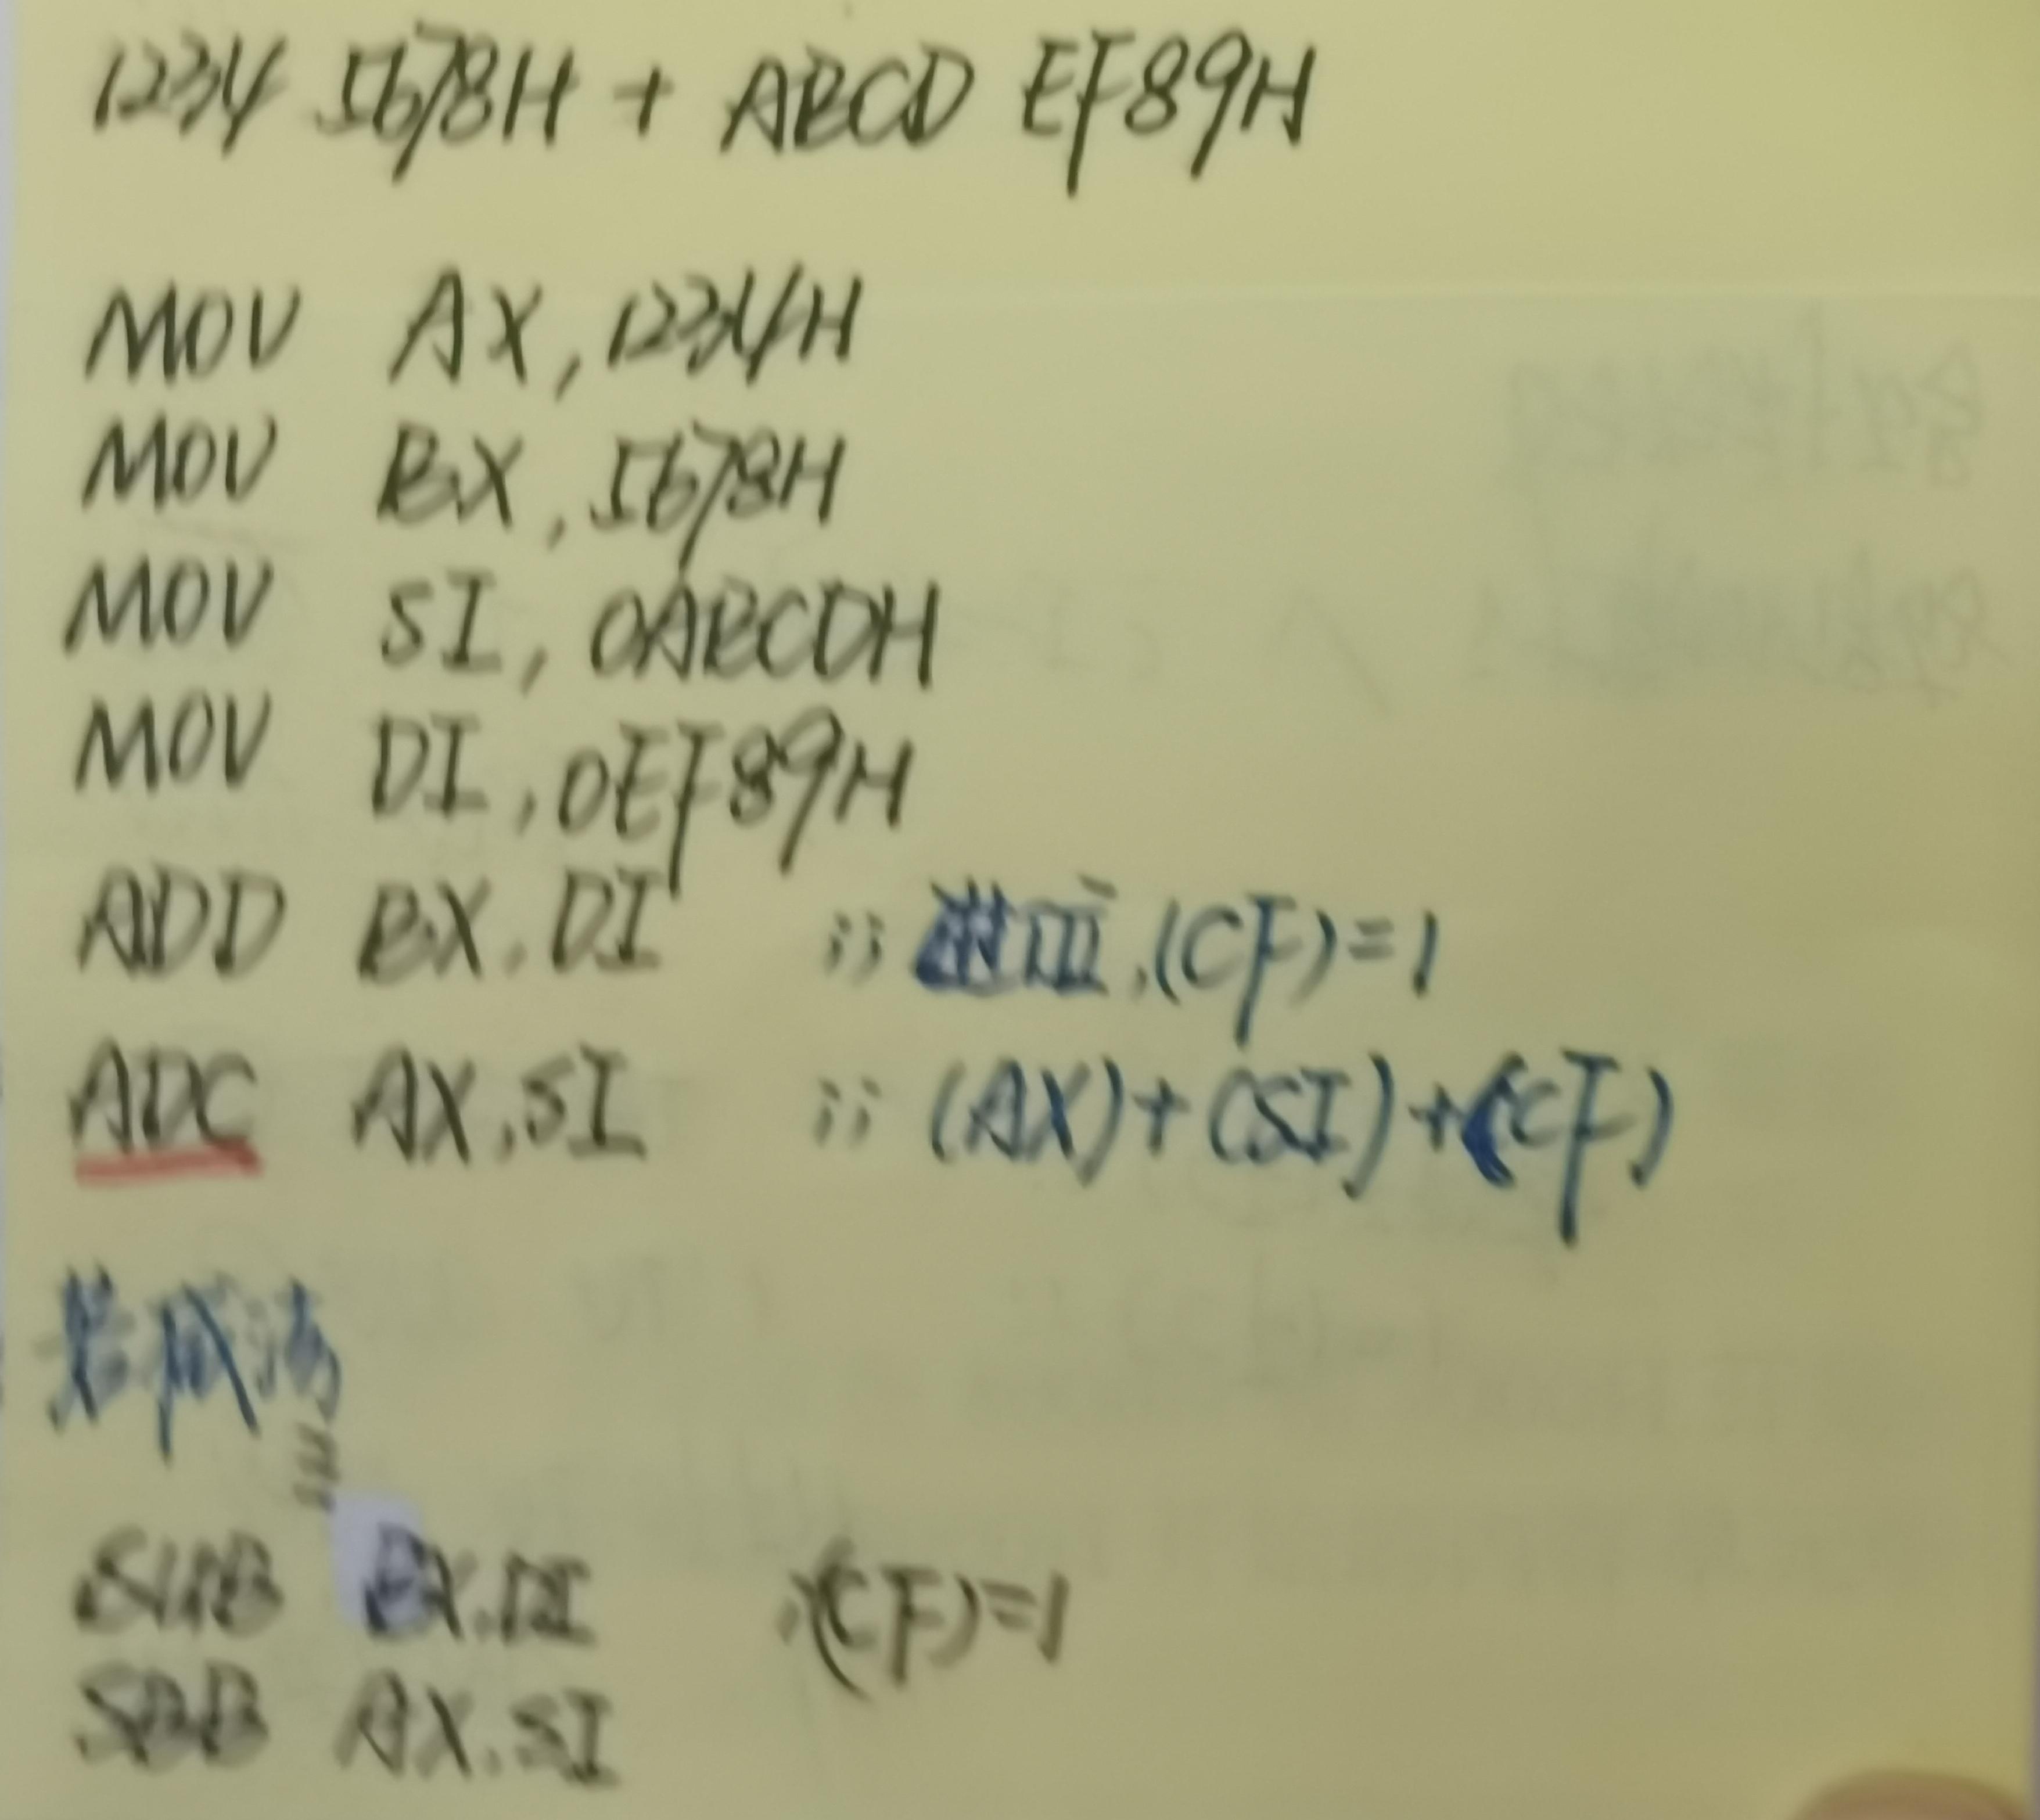 1234 5678H + ABCD EF89H
MOV AX, 1234H
MOV BX, 5678H
MOV SI, 0ABCDH
MOV DI, 0EF89H
ADD BX, DI ;; 进位, (CF)=1
ADC AX, SI ;; (AX)+(SI)+(CF)
若减法
SUB BX, DI ;(CF)=1
SBB AX, SI